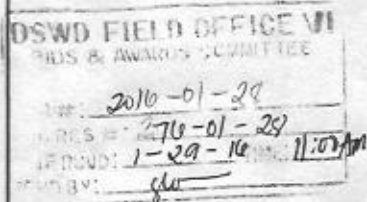 DSWD FIELD OFFICE VI
BIDS & AWARDS COMMITTEE
2016-01-28
RES #: 276-01-28
1-29-16 11:00 Am
BY: